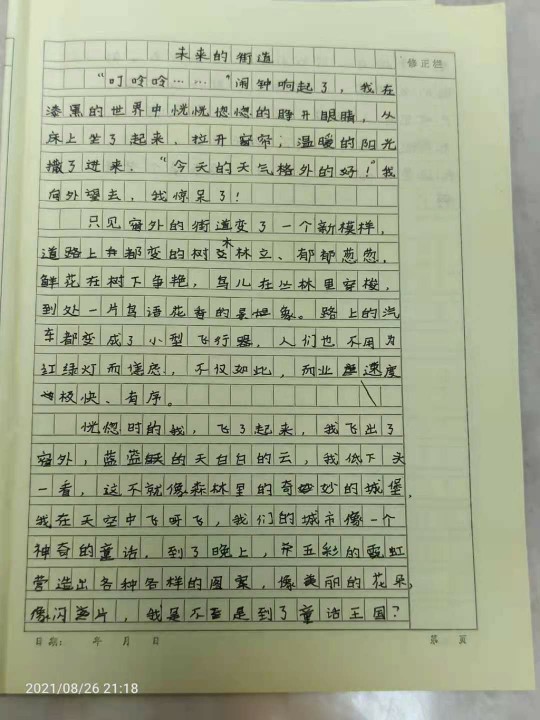 未来的街道
修正栏
“叮呤呤……”闹钟响起了，我在
漆黑的世界中恍恍惚惚的睁开眼睛，从
床上坐了起来、拉开窗帘；温暖的阳光
撒了进来、“今天的天气格外的好！”我
向外望去，我惊呆了！
只见窗外的街道变了一个新模样，
道路上都变的树木林立、郁郁葱葱，
鲜花在树下争艳，鸟儿在丛林里穿梭，
到处一片鸟语花香的景象。路上的汽
车都变成了小型飞行器，人们也不用为
红绿灯而焦急，不仅如此，而业速度
极快、有序。
恍惚时的我，飞了起来，我飞出了
窗外，蓝蓝的天白白的云，我低下头
一看，这不就像森林里的奇妙的城堡，
我在天空中飞呀飞，我们的城市像一个
神奇的童话，到了晚上，五彩的霓虹
营造出各种各样的图案，像美丽的花朵，
像闪片，我是不是到了童话王国？
日期： 年 月 日
第 页
2021/08/26 21:18